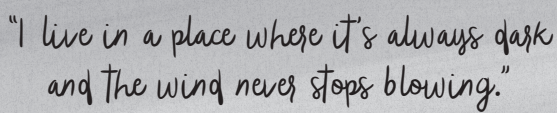 "I live in a place where it's always dark
and the wind never stops blowing."